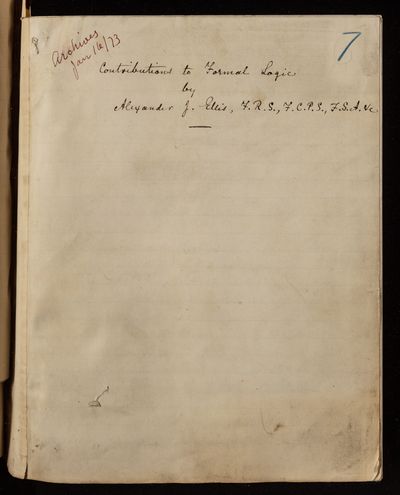 Archives
Jan 16/73
7
Contributions to Formal Logic
by
Alexander J. Ellis, F.R.S., F.C.P.S., F.S.A. &c